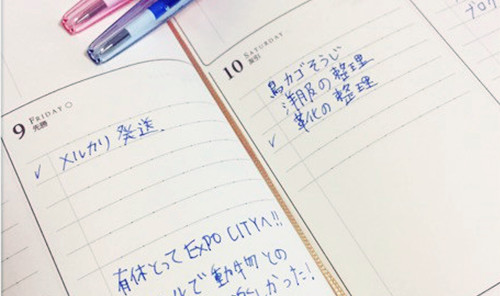 9 FRIDAY
先勝
✓ メルカリ 発送
有休とって EXPO CITYへ!!
ルで動物との
しかった!
10 SATURDAY
友引
鳥カゴそうじ
洋服の整理
✓ 革化の整理
ブログ